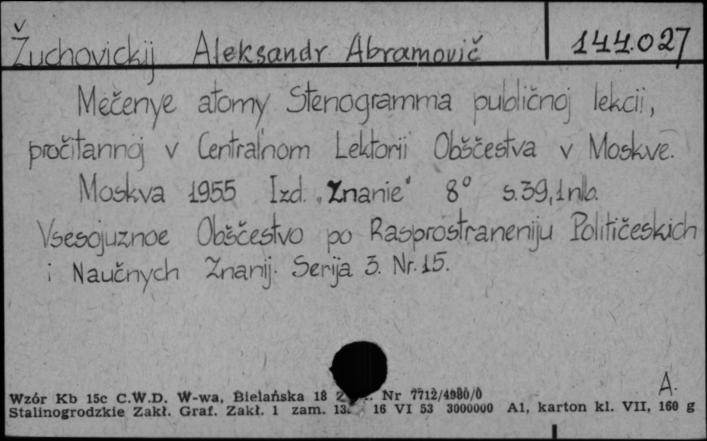 Žuchovickij Aleksandr Abramovič 144.027
Mečenye atomy Stenogramma publičnoj lekcii,
pročitannoj v Central'nom Lektorii Obščestva v Moskve.
Moskva 1955 Izd. "Znanie" 8° s.39,1nlb.
Vsesojuznoe Obščestvo po Rasprostraneniju Političeskich
i Naučnych Znanij. Serija 3. Nr.15.
A.
Wzór Kb 15c C.W.D. W-wa, Bielańska 18 Nr 7712/4980/0
Stalinogrodzkie Zakł. Graf. Zakł. 1 zam. 16 VI 53 3000000 A1, karton kl. VII, 160 g